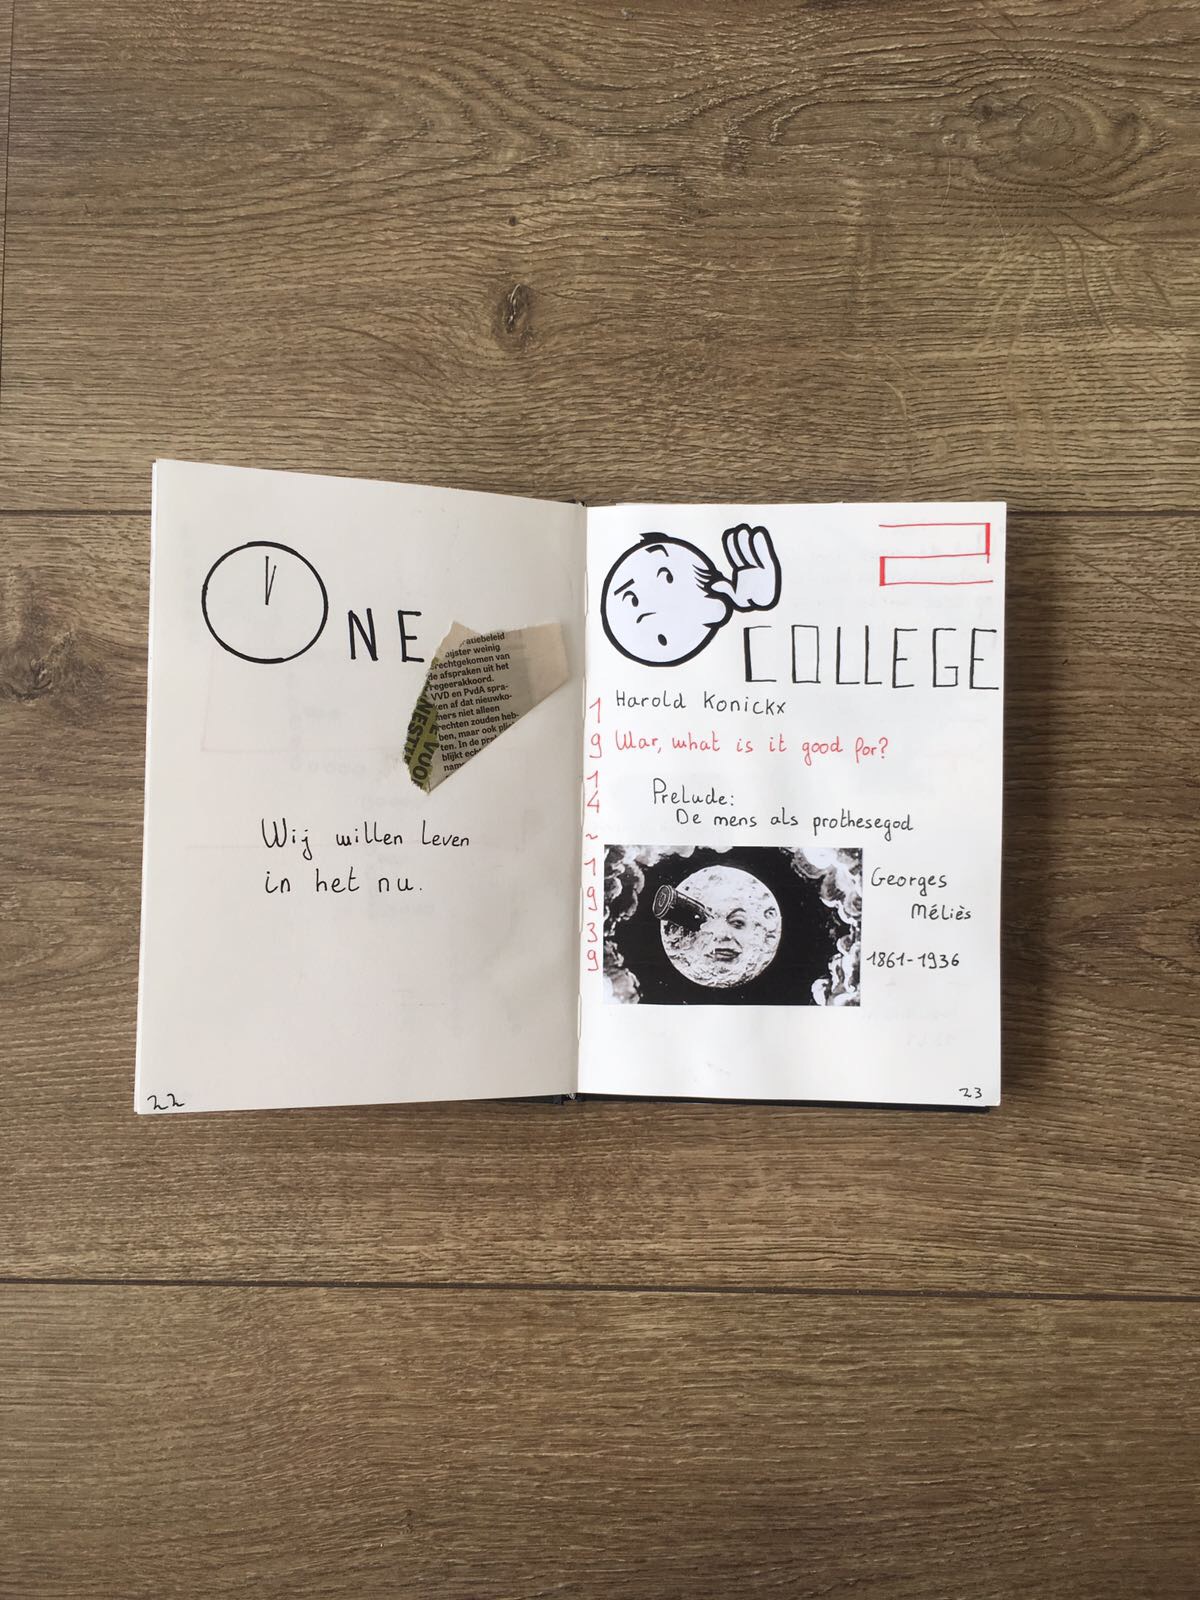 ONE
atiebeleid
bijster weinig
terechtgekomen van
de afspraken uit het
regeerakkoord.
VVD en PvdA spra-
ken af dat nieuwko-
mers niet alleen
rechten zouden heb-
ben, maar ook
ten. In de
blijkt
Wij willen leven
in het nu.
22
2
COLLEGE
Harold Konickx
War, what is it good for?
1914~1939
Prelude:
De mens als prothesegod
Georges
Méliès
1861-1936
23